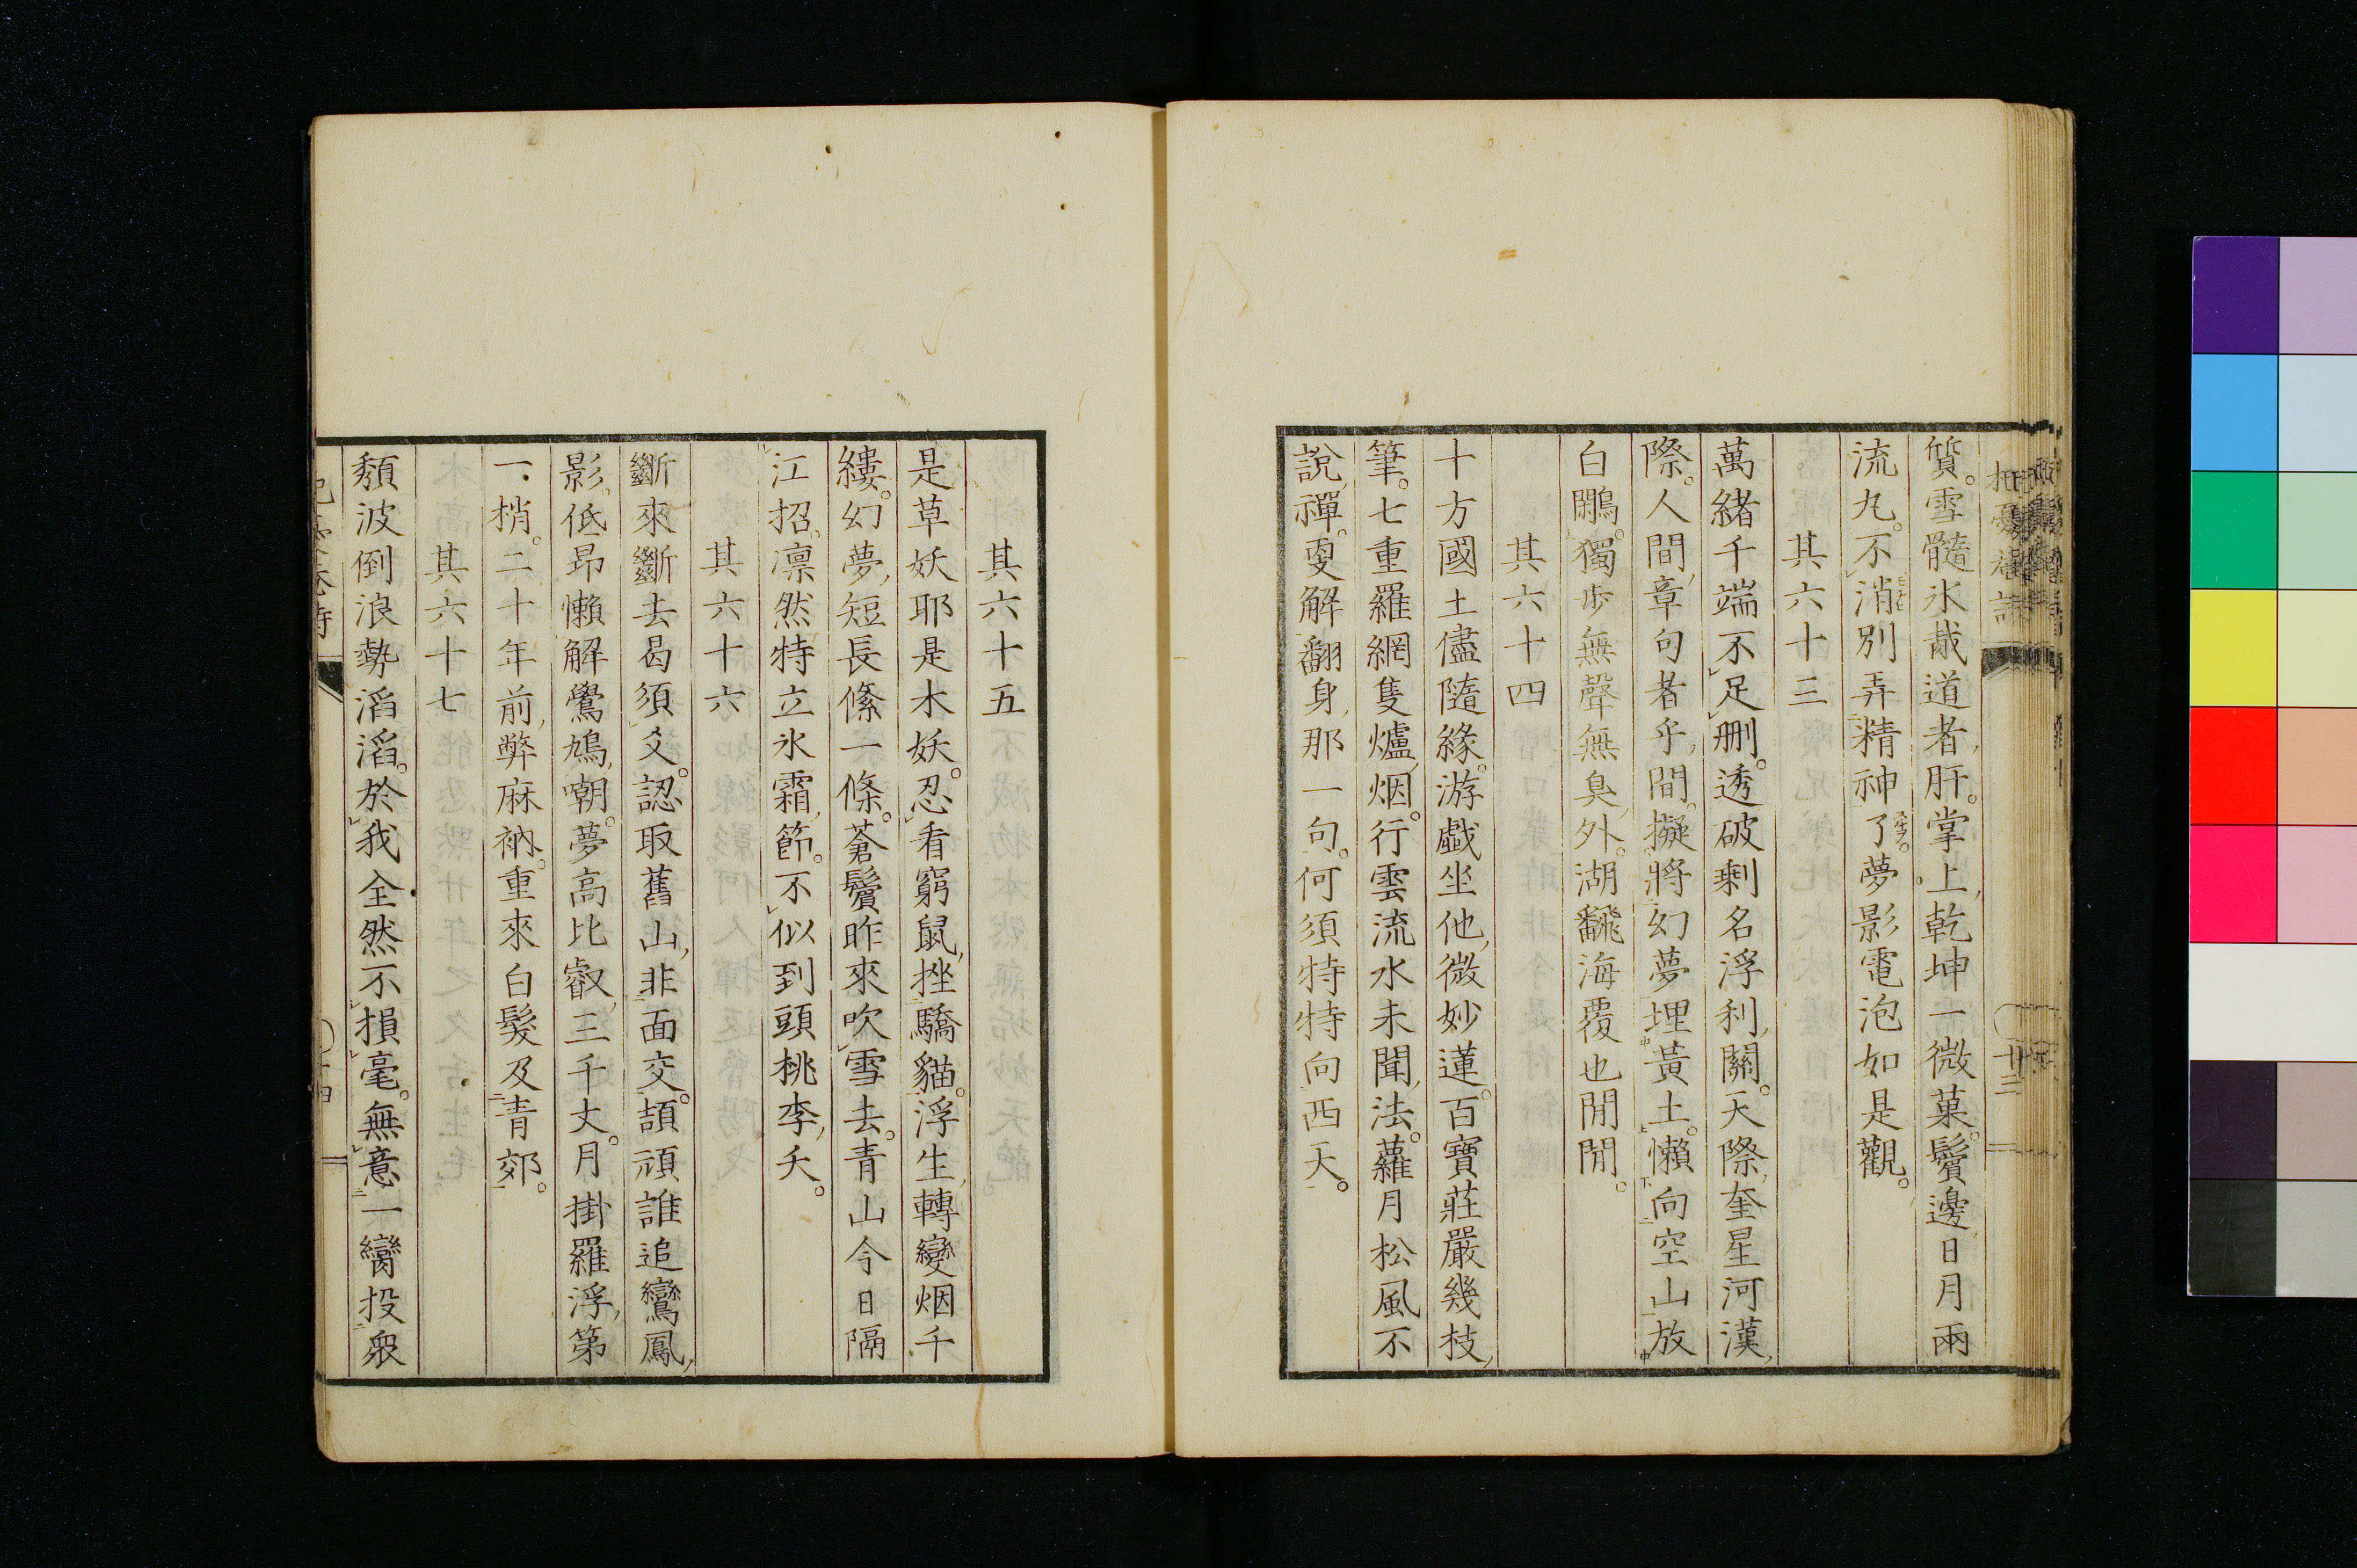 質。雪髓氷戴道者肝。掌上乾坤一微菓。鬢邊日月兩
流丸。不消別弄精神了。夢影電泡如是觀。
其六十三
萬緒千端不足刪。透破剩名浮利關。天際奎星河漢
際。人間章句者乎間。擬將幻夢埋黃土。懶向空山放
白鷳。獨步無聲無臭外。湖飜海覆也閒閒。
其六十四
十方國土儘隨緣。游戲坐他微妙蓮。百寶莊嚴幾枝
筆。七重羅網隻爐烟。行雲流水未聞法。蘿月松風不
說禪。更解翻身那一句。何須特特向西天。
其六十五
是草妖耶是木妖。忍看窮鼠挫驕貓。浮生轉變烟千
縷。幻夢短長絛一條。蒼鬢昨來吹雪去。青山今日隔
江招。凛然特立氷霜節。不似到頭桃李夭。
其六十六
斷來斷去曷須爻。認取舊山非面交。頡頑誰追鸞鳳
影。低昂懶解鷽鳩嘲。夢高比叡三千丈。月掛羅浮第
一梢。二十年前弊麻衲。重來白髮及青郊。
其六十七
頽波倒浪勢滔滔。於我全然不損毫。無意一臠投衆
廿三